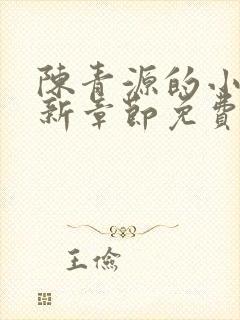 陳青源的小
新章節免費
王儉